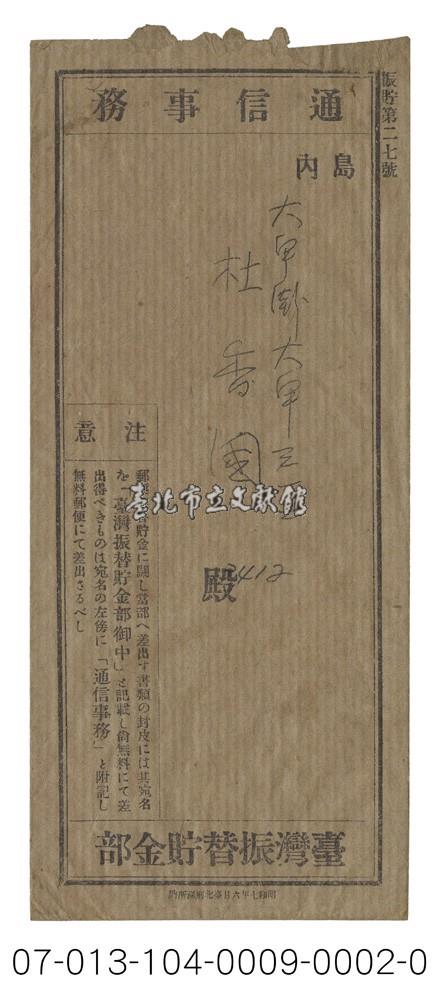 振貯第二七號
通信事務
島內
大甲郡大甲三
杜香國
殿
2412
注意
郵便振替貯金に關し當部へ差出す書類の封皮には其宛名
を「臺灣振替貯金部御中」と記載し尙無料にて差
出得べきものは宛名の左傍に「通信事務」と附記し
無料郵便にて差出さるべし
臺灣振替貯金部
臺北市立文獻館
07-013-104-0009-0002-0